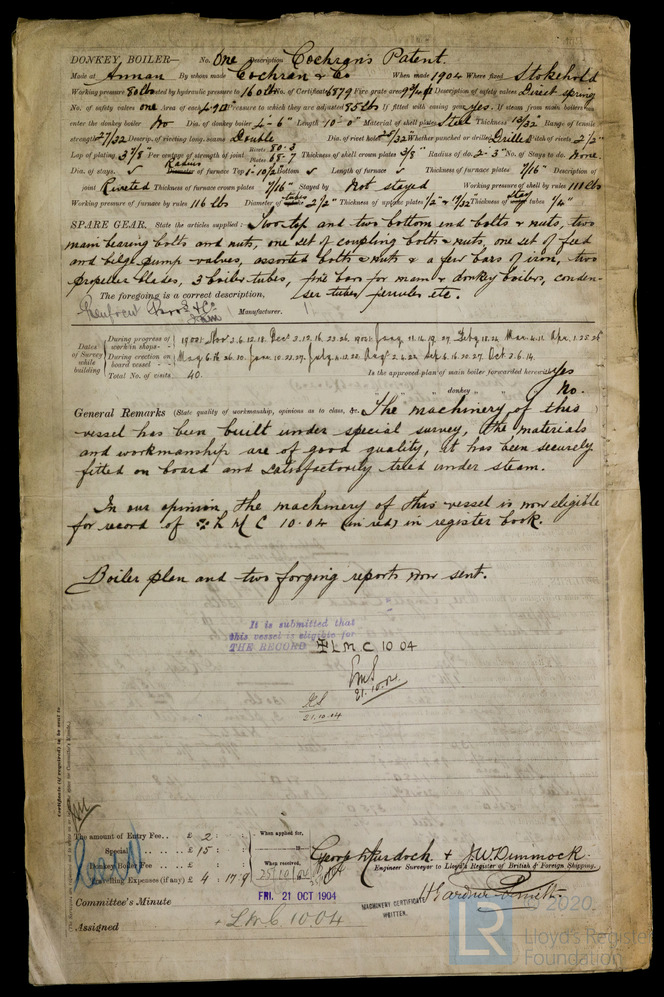 DONKEY BOILER— No. One Description Cochran's Patent.
Made at Annan By whom made Cochran & Co When made 1904 Where fixed Stokehold
Working pressure 80 lbs tested by hydraulic pressure to 160 lbs No. of Certificate 6879 Fire grate area Description of safety valves Direct spring
No. of safety valves one Area of each 4.90 Pressure to which they are adjusted 85 lbs If fitted with easing gear yes. If steam from main boilers can
enter the donkey boiler No Dia. of donkey boiler 4'-6" Length 10'-0" Material of shell plates Steel Thickness 13/32" Range of tensile
strength 27/32 Descrip. of riveting long. seams Double Dia. of rivet holes Whether punched or drilled Drilled Pitch of rivets 2½"
Lap of plating 3⅞" Per centage of strength of joint Rivets 80.3 Plates 68.7 Thickness of shell crown plates 3/8" Radius of do. 2'-3" No. of Stays to do. None
Dia. of stays. Radius of furnace Top Bottom Length of furnace Thickness of furnace plates 7/16" Description of
joint Riveted Thickness of furnace crown plates 7/16" Stayed by Not stayed Working pressure of shell by rules 111 lbs
Working pressure of furnace by rules 116 lbs Diameter of tubes 2½" Thickness of uptake plates ½" & Thickness of Stay tubes ¼"
SPARE GEAR. State the articles supplied:— Two top and two bottom end bolts & nuts, two
main bearing bolts and nuts, one set of coupling bolts & nuts, one set of feed
and bilge pump valves, assorted bolts & nuts & a few bars of iron, two
propeller blades, 3 boiler tubes, fire bars for main & donkey boilers, conden-
ser tubes, ferrules etc.
The foregoing is a correct description,
Manufacturer.
Dates of Survey while building
During progress of work in shops—
During erection on board vessel—
Total No. of visits 40.
Is the approved plan of main boiler forwarded herewith Yes
" " " donkey " " " No.
General Remarks (State quality of workmanship, opinions as to class, &c. The machinery of this
vessel has been built under special survey, the materials
and workmanship are of good quality, it has been securely
fitted on board and satisfactorily tried under steam.
In our opinion the machinery of this vessel is now eligible
for record of ✠ L M C 10.04 (in red) in register book.
Boiler plan and two forging reports now sent.
It is submitted that
this vessel is eligible for
THE RECORD ✠ L M C 10 04
21.10.04
21.10.04
The amount of Entry Fee.. £ 2 : :
Special .. .. £ 15 : :
Donkey Boiler Fee .. .. £ : :
Travelling Expenses (if any) £ 4 : 17 : 9
When applied for,
When received,
Geo. Murdoch & J.W. Dimmock.
Engineer Surveyor to Lloyd's Register of British & Foreign Shipping.
Committee's Minute FRI. 21 OCT 1904
MACHINERY CERTIFICATE WRITTEN.
Assigned + L M C 10 04
© 2020.
LR Lloyd's Register
Foundation